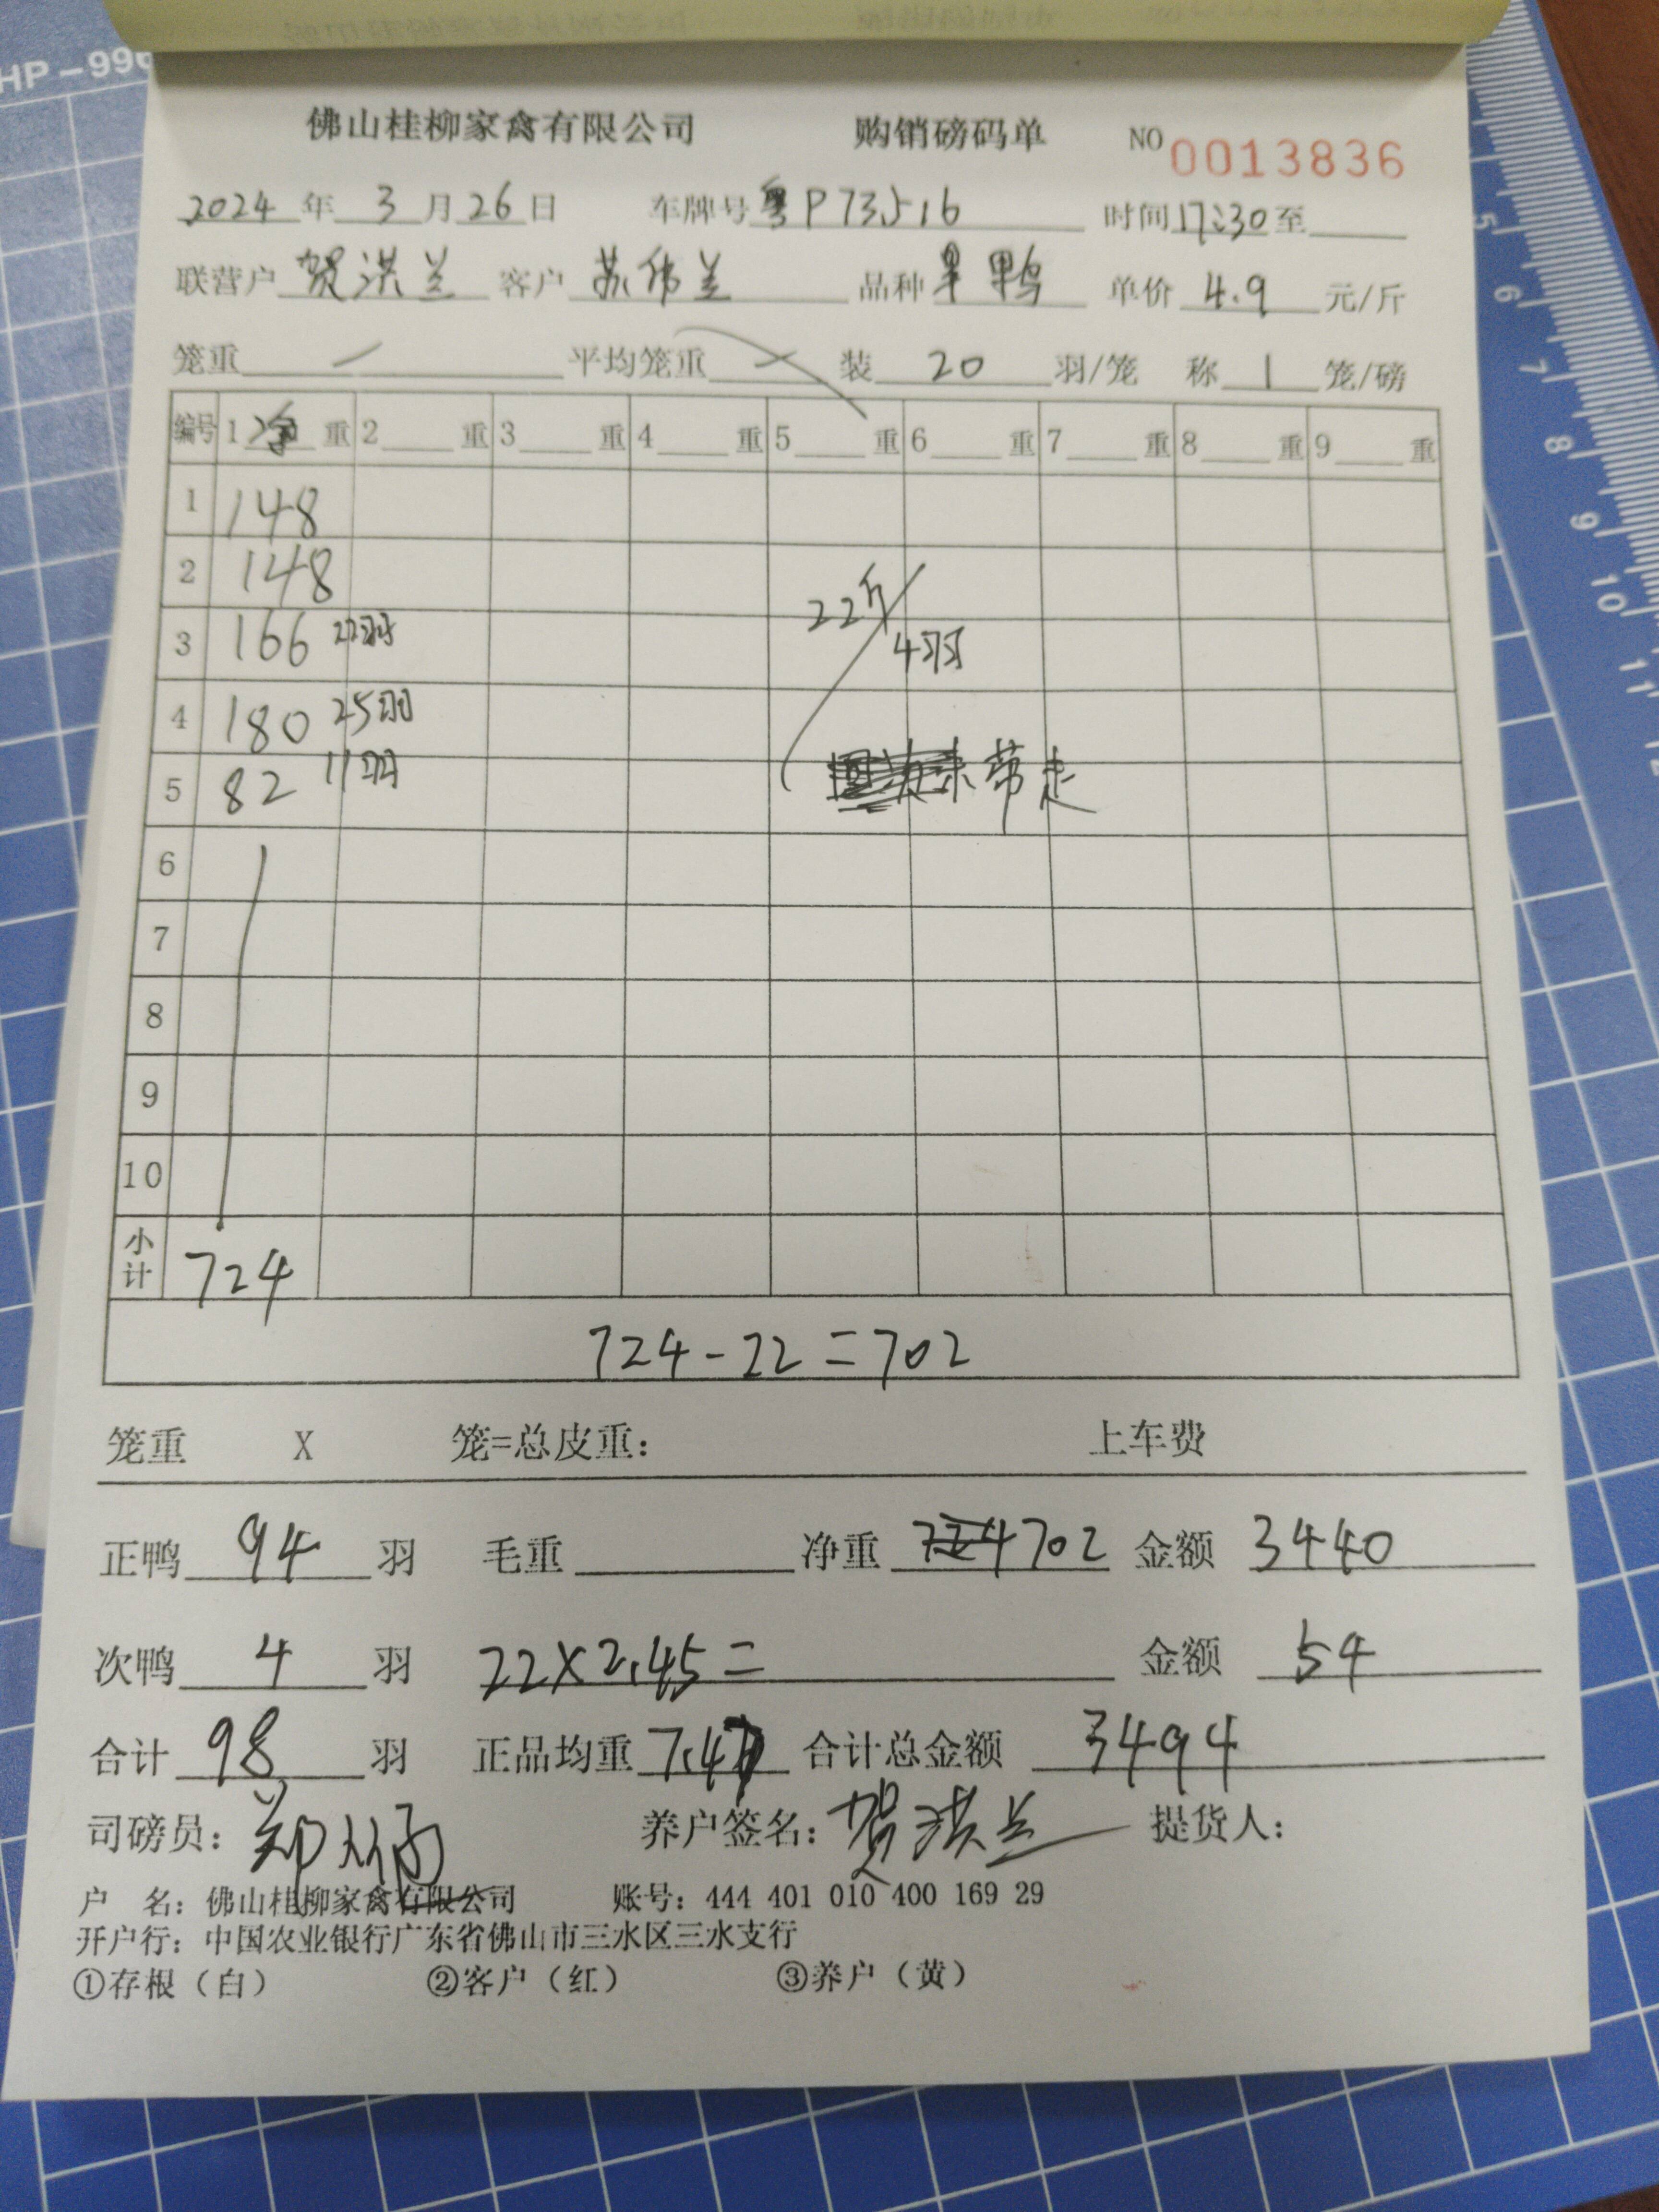 HP-996
佛山桂柳家禽有限公司 购销磅码单 NO 0013836
2024年3月26日 车牌号粤P73516 时间17:30至
联营户 贺洪兰 客户 苏伟兰 品种 旱鸭 单价 4.9 元/斤
笼重 平均笼重 装 20 羽/笼 称 1 笼/磅
编号 1净重 2重 3重 4重 5重 6重 7重 8重 9重
1 148
2 148 22斤
3 166 22羽 4羽
4 180 25羽
5 82 11羽 带走
6
7
8
9
10
小计 724
724-22=702
笼重 X 笼=总皮重: 上车费
正鸭 94 羽 毛重 净重 724 702 金额 3440
次鸭 4 羽 22×2.45= 金额 54
合计 98 羽 正品均重 7.47 合计总金额 3494
司磅员: 郑 养户签名: 贺洪兰 提货人:
户 名: 佛山桂柳家禽有限公司 账号: 444 401 010 400 169 29
开户行: 中国农业银行广东省佛山市三水区三水支行
①存根(白) ②客户(红) ③养户(黄)
5
6
7
8
9
10
11
12